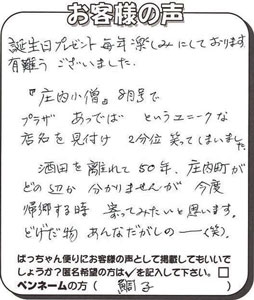 お客様の声
誕生日プレゼント毎年楽しみにしております
有難うございました.
『庄内小僧』8月号で
プラザ あっでば というユニークな
店名を見付け 2分位笑ってしまいました
酒田を離れて50年、庄内町が
どの辺か分かりませんが 今度
帰郷する時 寄ってみたいと思います。
どげだ物 あんなだがしの―(笑).
ばっちゃん便りにお客様の声として掲載してもいいで
しょうか?匿名希望の方は✓を記入して下さい。□
ペンネームの方( 鯛子 )